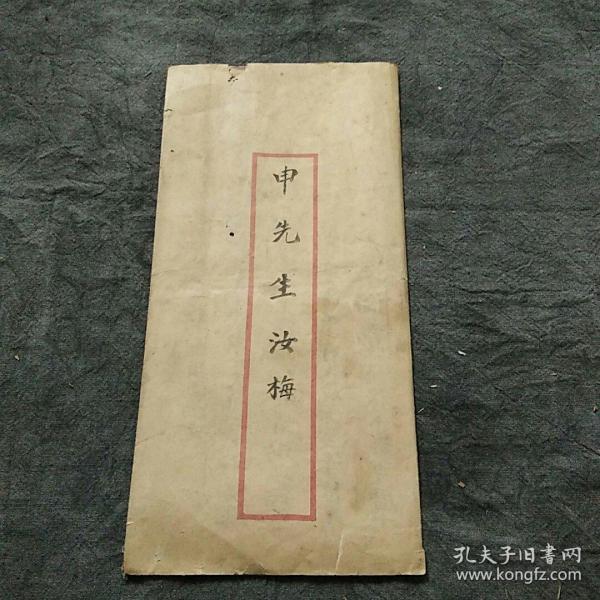 申先生汝梅
孔夫子旧書网
www.kongfz.com